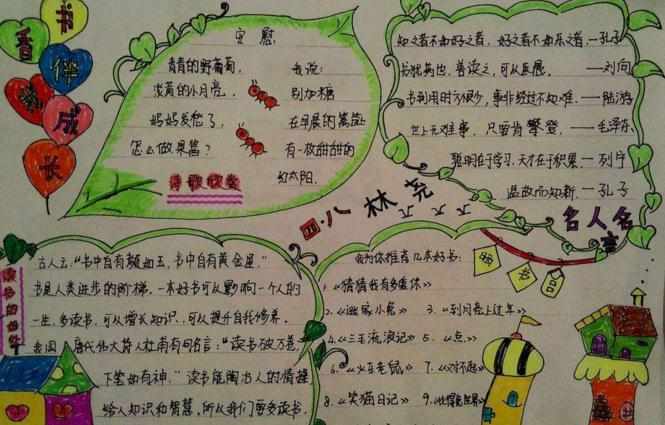 书
香
伴
我
成
长
安慰
青青的野葡萄,
淡黄的小月亮,
妈妈发愁了,
怎么做果酱?
我说:
别加糖
在早晨的篱笆
有一枚甜甜的
红太阳.
诗歌欣赏
知之者不如好之者,好之者不如乐之者.—孔子
书犹药也,善读之,可以医愚.——刘向
书到用时方恨少,事非经过不知难.—陆游
世上无难事,只要肯攀登.—毛泽东
聪明在于学习,天才在于积累.—列宁
温故而知新.—孔子
名人名言
四.八 林尧
古人云,"书中自有颜如玉,书中自有黄金屋."
书是人类进步的阶梯.一本好书可以影响一个人的
一生,多读书.可以增长知识,可以提升自我修养.
我国 唐代伟大诗人杜甫有句名言:"读书破万卷,
下笔如有神."读书能陶冶人的情操
给人知识和智慧,所以我们要多读书,
我为你推荐几本好书:
1.《猜猜我有多爱你》
2.《逃家小兔》 3.《到月亮上过年》
4.《三毛流浪记》 5.《点》
6.《火王老鼠》 7.《对不起》
8.《笑猫日记》 9.